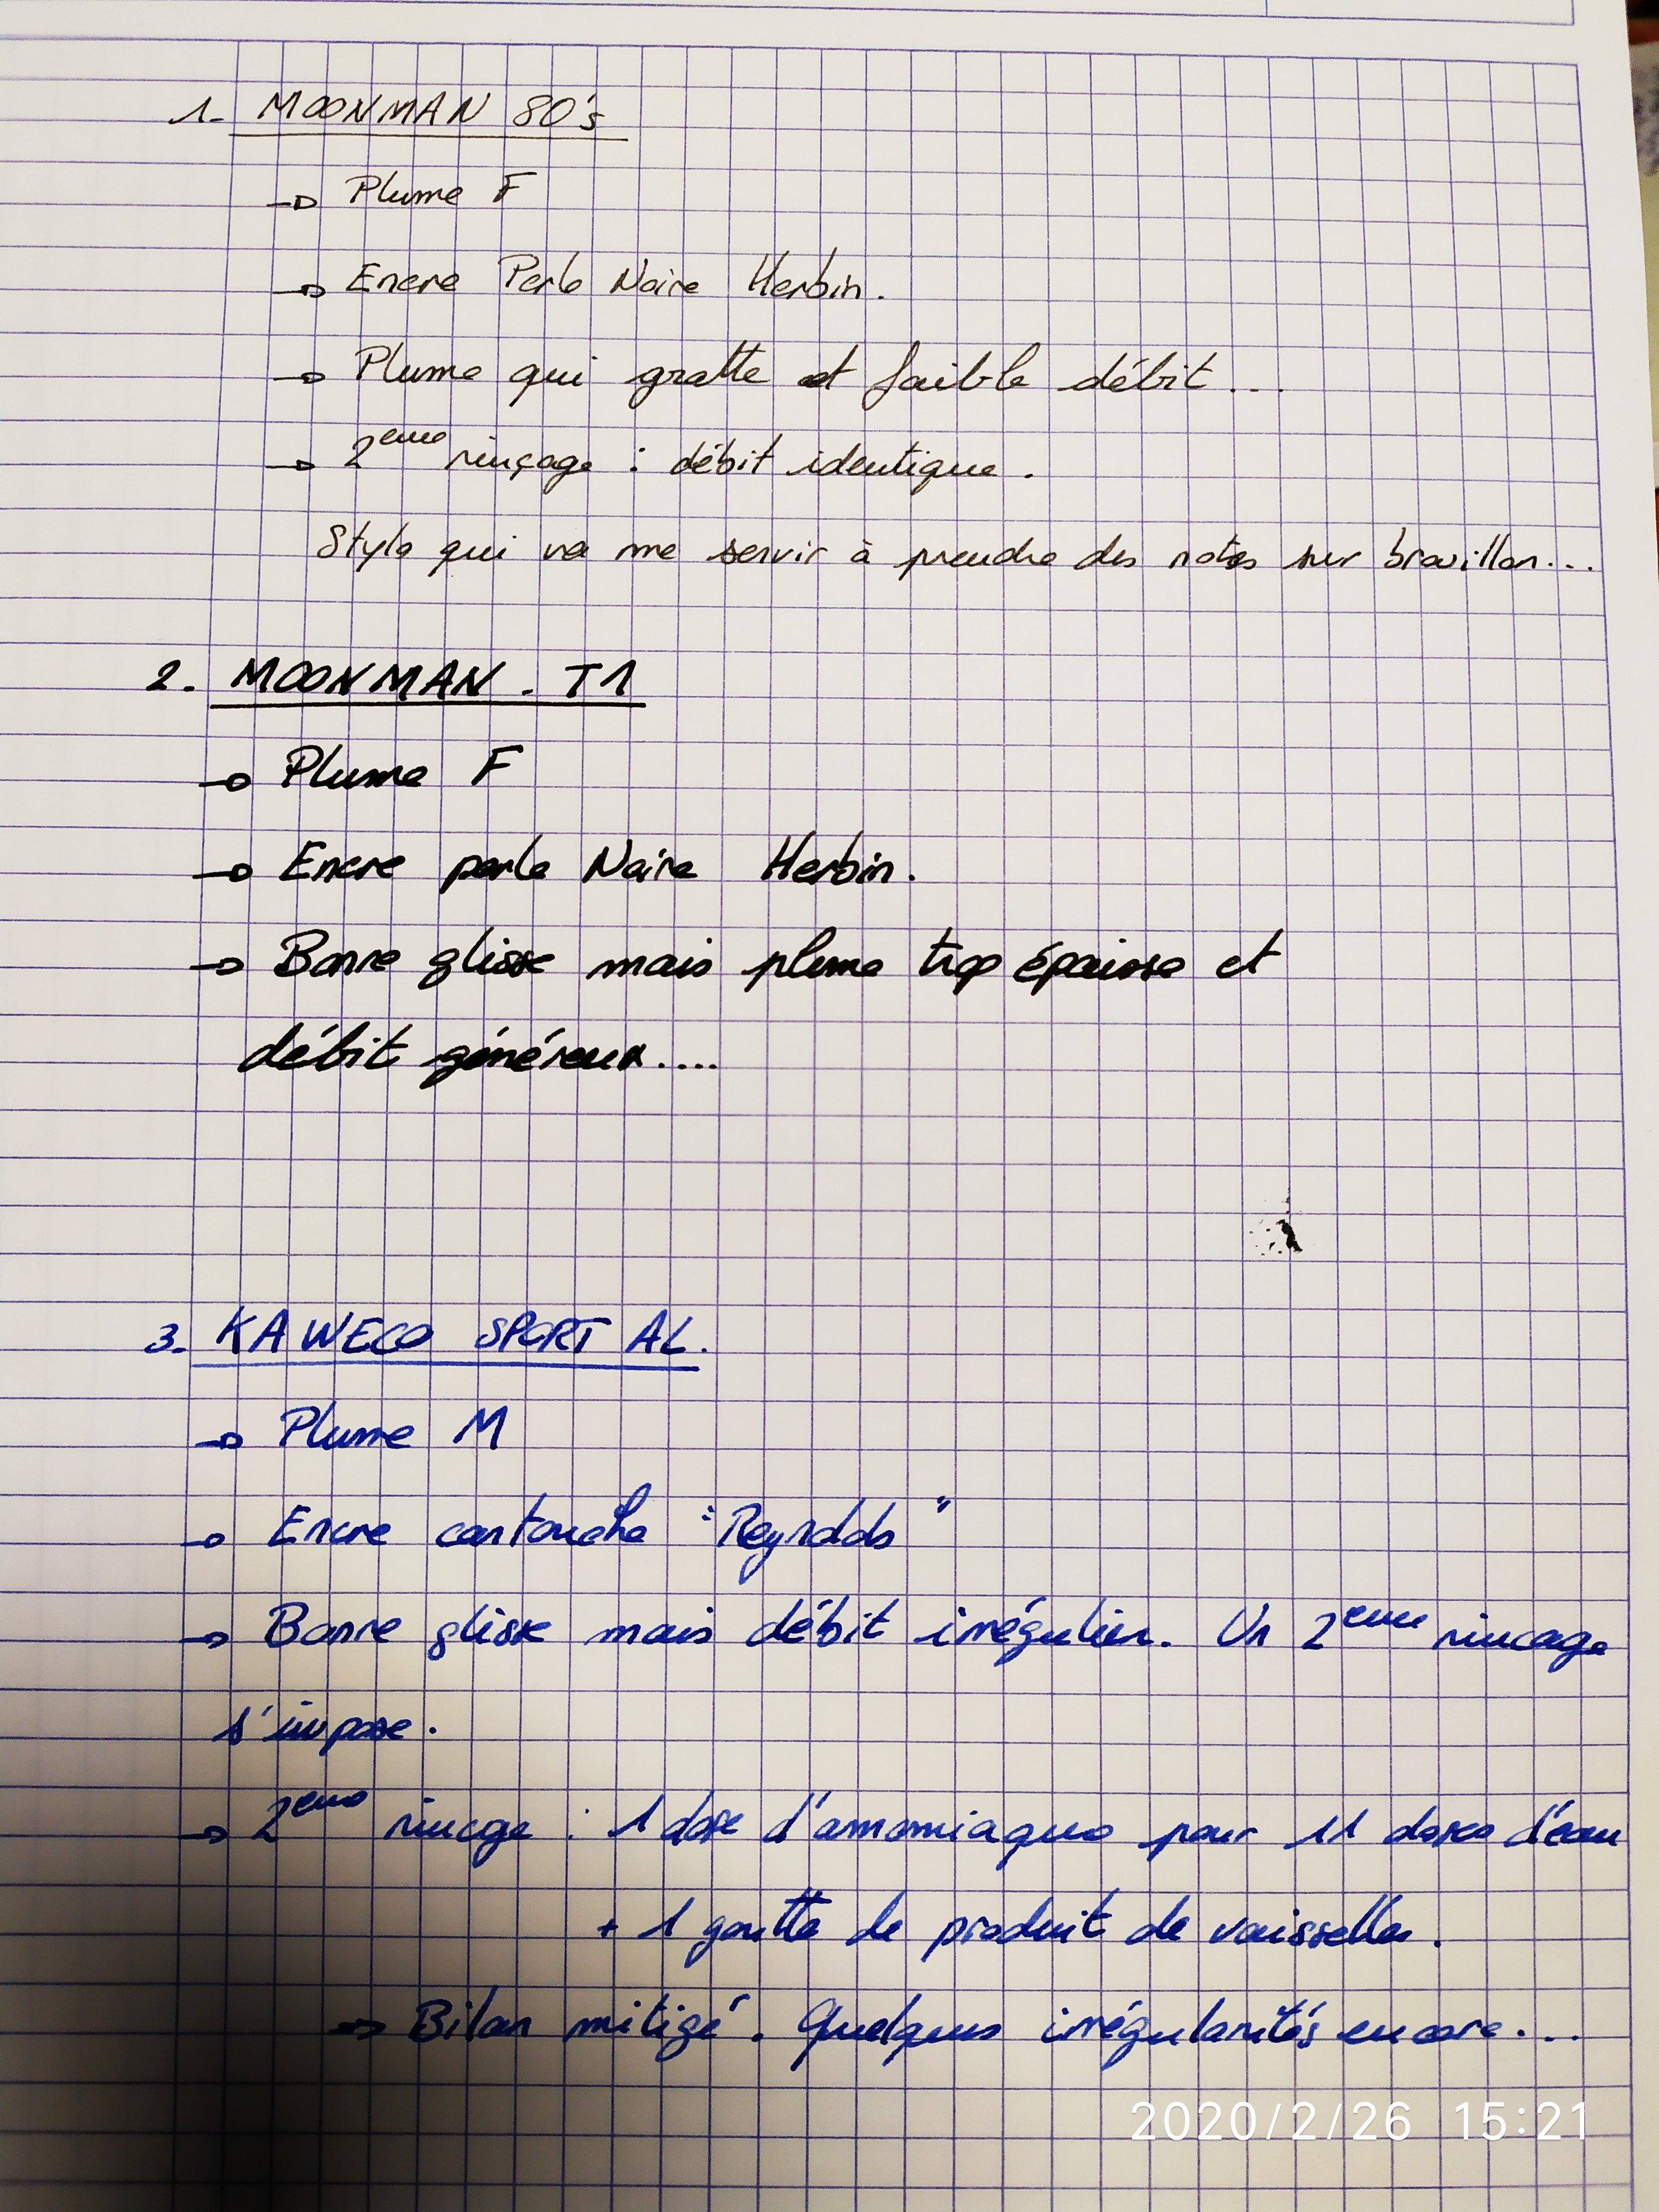 1- MOONMAN 80's
→ Plume F
→ Encre Perle Noire Herbin.
→ Plume qui gratte et faible débit...
→ 2eme rinçage : débit identique.
Stylo qui va me servir à prendre des notes sur brouillon...
2. MOONMAN. T1
→ Plume F
→ Encre perle Noire Herbin.
→ Bonne glisse mais plume trop épaisse et
débit généreux....
3- KAWECO SPORT AL.
→ Plume M
→ Encre cartouche "Reynolds"
→ Bonne glisse mais débit irrégulier. Un 2eme rincage
s'impose.
→ 2eme rincge : 1 dose d'amomiaque pour 11 doses d'eau
+ 1 goutte de produit de vaisselle.
→ Bilan mitigé. Quelques irrégularités encore...
2020/2/26 15:21